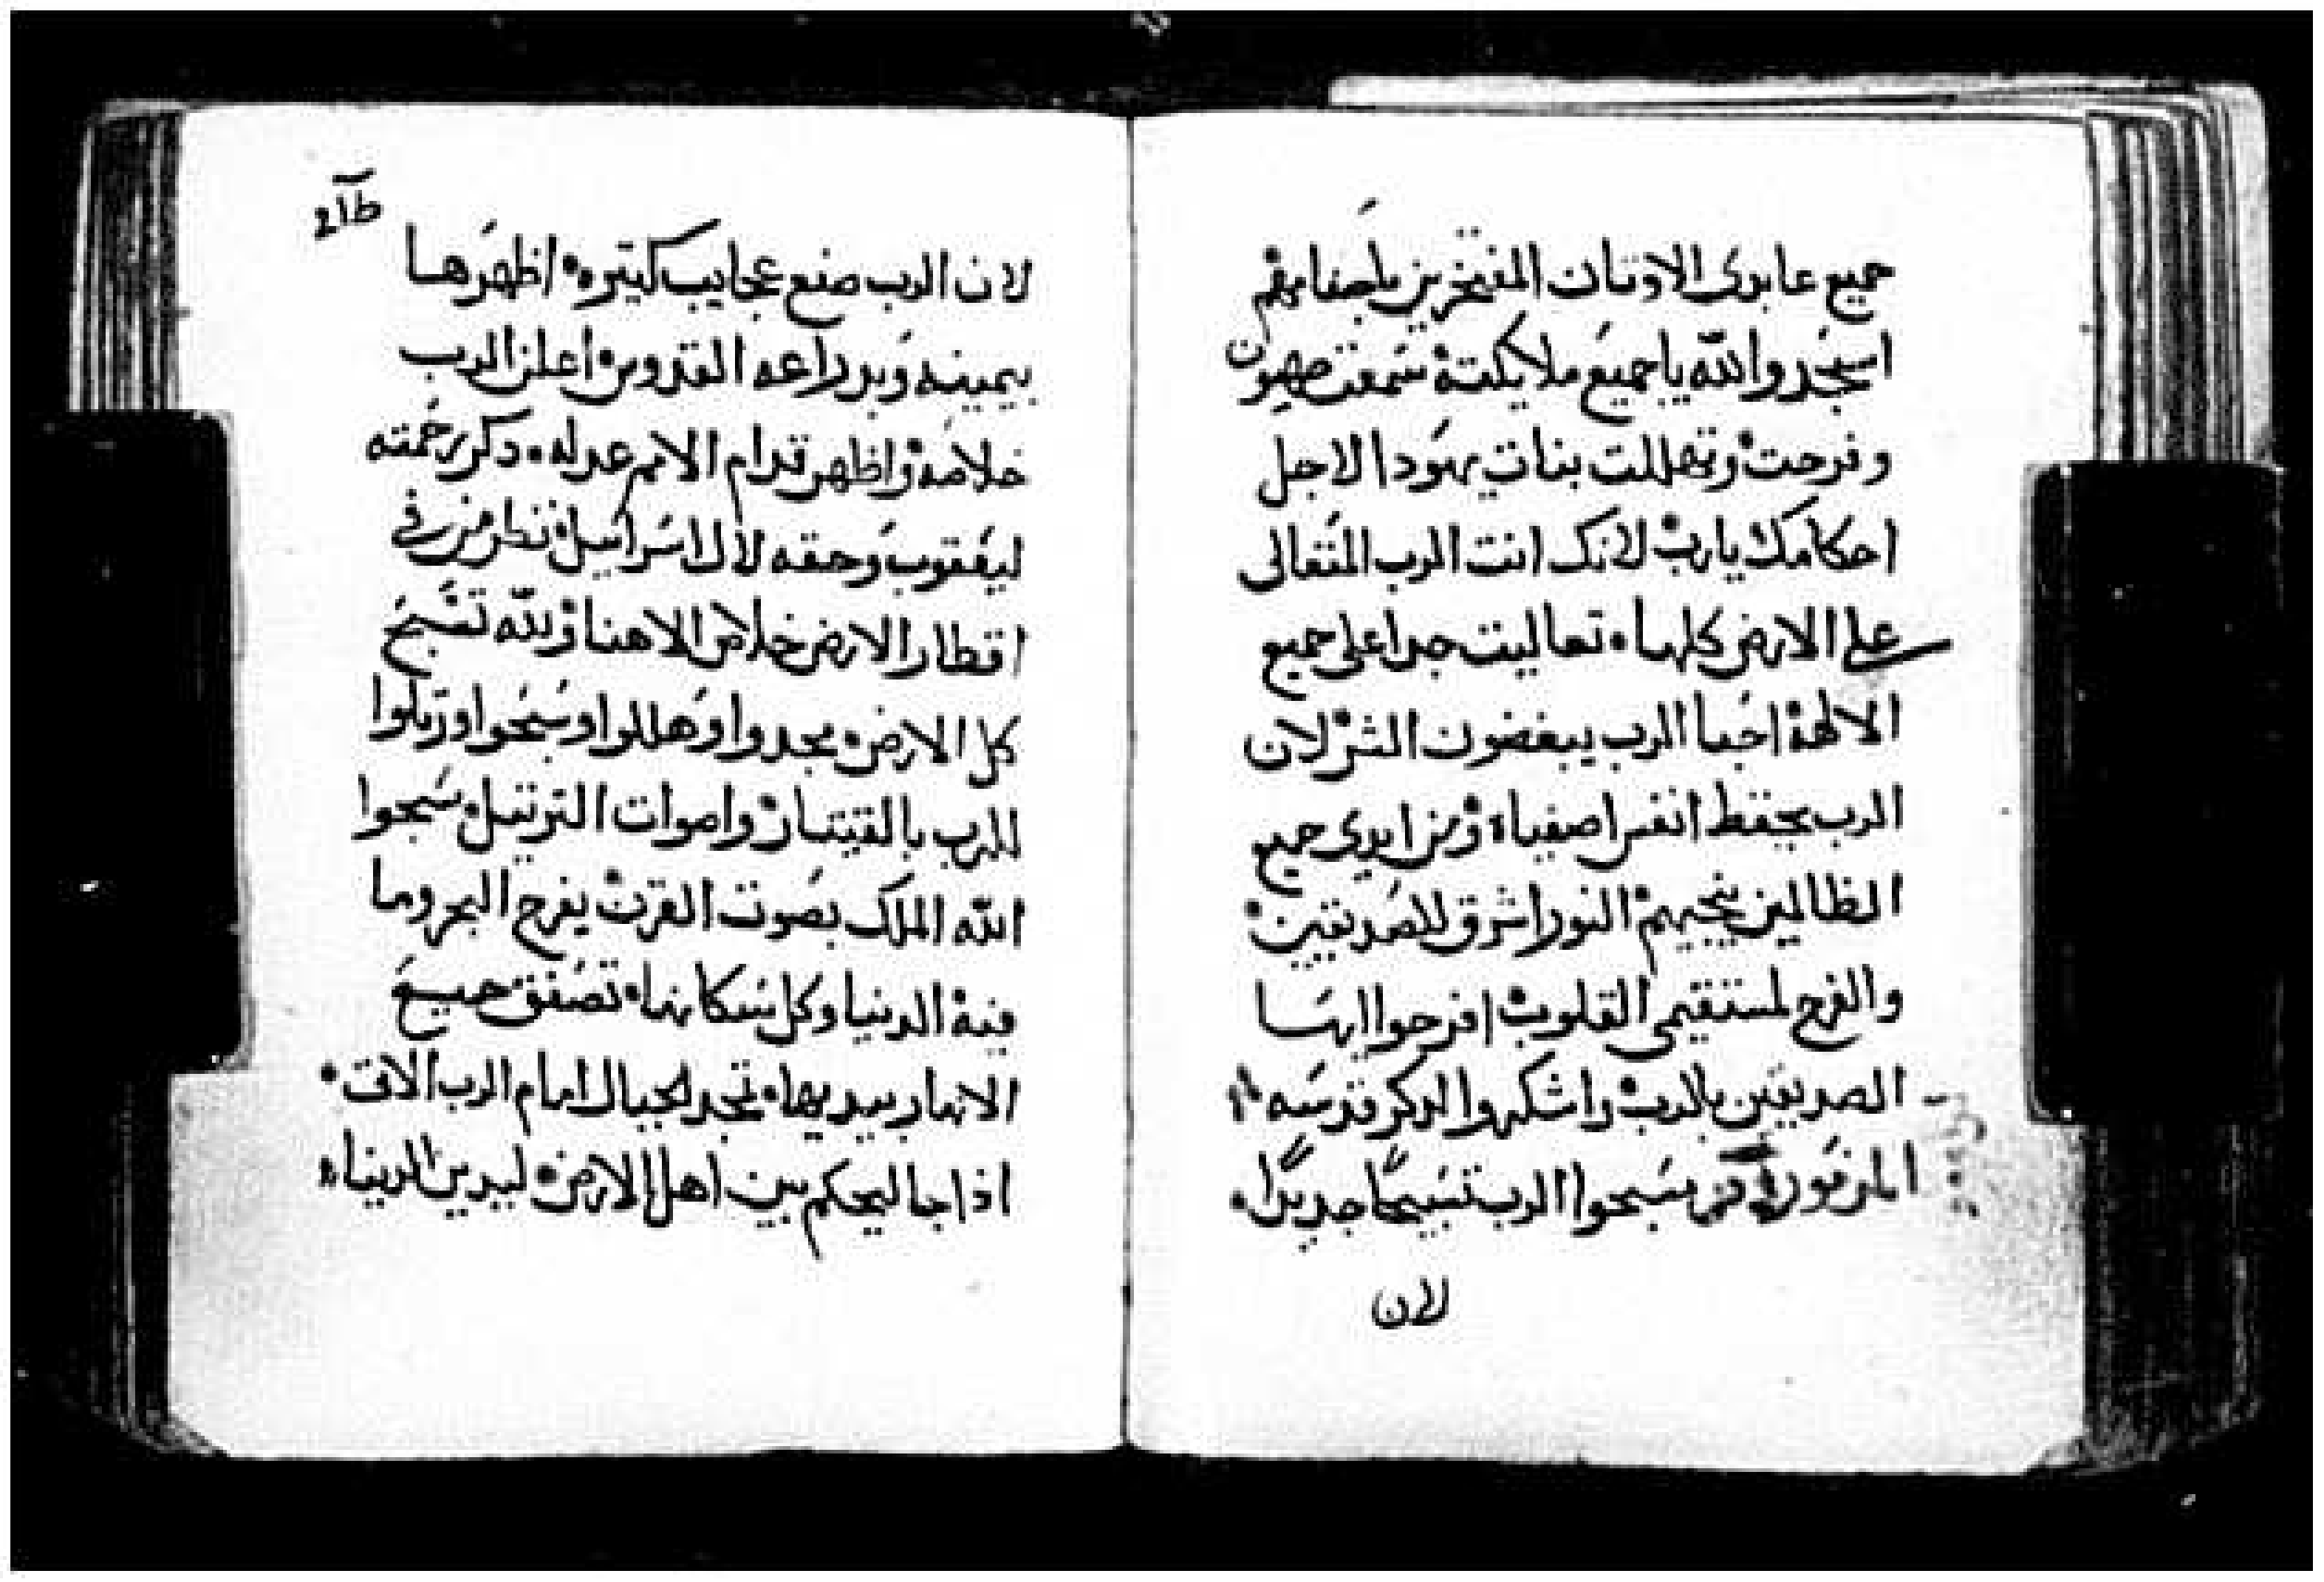 جميع عابدى الاوتان المفتخرين باصنامهم
اسجدوا لله يا جميع ملايكته سمعت صهيون
وفرحت وتهللت بنات يهودا لاجل
احكامك يارب لانك انت الرب المتعالى
على الارض كلها تعاليت جدا على جميع
الالهة احبا الرب يبغضون الشر لان
الرب يحفظ انفس اصفياه ومن ايدى جميع
الظالمين ينجيهم النور اشرق للصديقين
والفرح لمستقيمى القلوب افرحوا ايها
الصديقين بالرب واشكروا لذكر قدسه
المزمور سبحوا الرب تسبيحا جديدا
لان
لان الرب صنع عجايب كتيره اظهرها
بيمينه وبدراعه القدوس اعلن الرب
خلاصه واظهر قدام الامم عدله دكر رحمته
ليعقوب وحقه لال اسراييل نظر من فى
اقطار الارض خلاص الاهنا ولله تسبح
كل الارض مجدوا وهللوا وسبحوا ورتلوا
للرب بالقيتار واصوات الترتيل سبحوا
الله الملك بصوت القرن يفرح البحر وما
فيه الدنيا وكل سكانها تصفق جميع
الانهار بيديها تمجد الجبال امام الرب الات
اذا جا ليحكم بين اهل الارض ليدين الدنيا